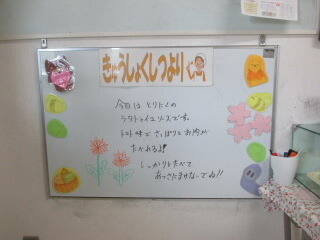 きゅうしょくしつより
今日は とりにくの
ラタトゥイユソースです。
トマト味で さっぱりと お肉が
たべれるよ!!
しっかりとたべて
あつさにまけないでね!!